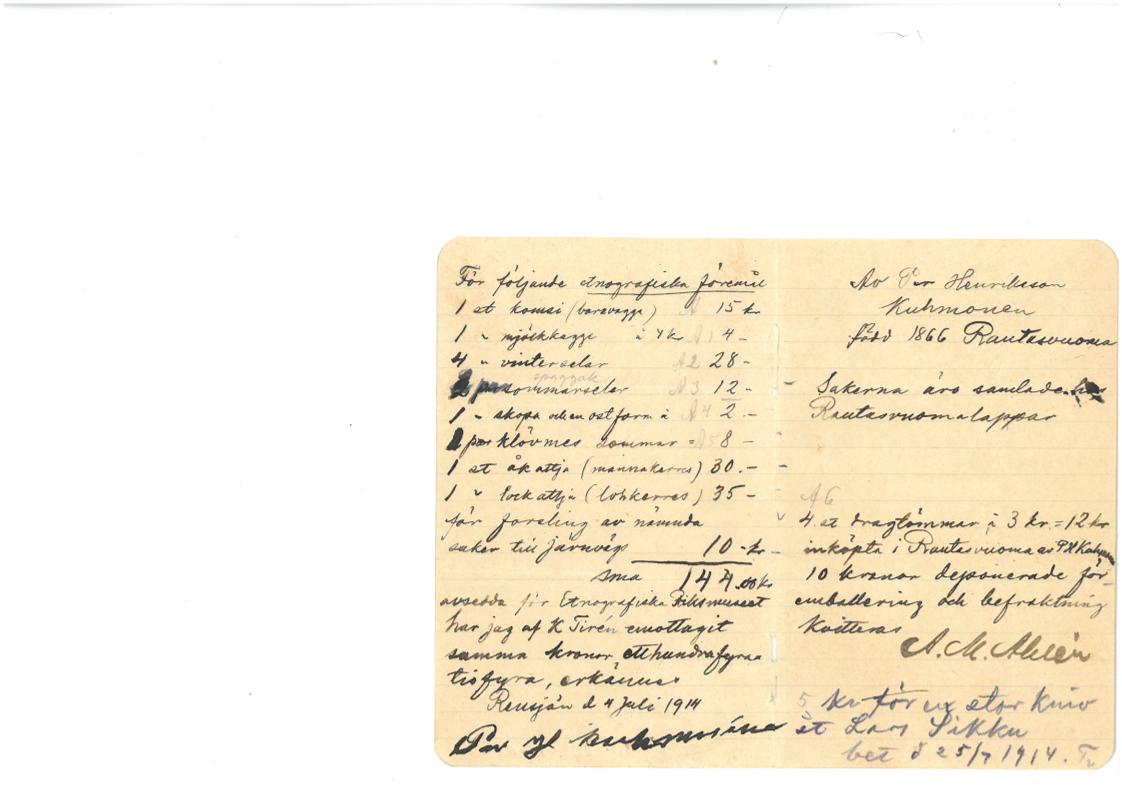 För följande etnografiska föremål
1 st komsi (barnvagga) A 15 kr
1 " mjölkkagge à 4 kr A1 4 -
4 " vinterselar A2 28 -
2 par sommarselar A3 12 -
spaggak
1 " skopa och en ostform à A4 2. -
1 par klövmes sommar = A5 8 -
1 st åkattja (mannakerres) 30. -
1 " lockattja (lohkerres) 35 -
för forsling av nämnda
saker till järnväg 10 - kr
sma 144.00 kr
avsedda för Etnografiska Riksmuseet
har jag af K Tirén emottagit
summa kronor etthundrafyra
tiofyra, erkännes
Rensjön d 4 Juli 1914
Per H
Av Per Henriksson
Kuhmonen
född 1866 Rautasvuoma
Sakerna äro samlade
Rautasvuomalappar
A6
4. st dragtömmar à 3 kr. = 12 kr
inköpta i Rautasvuoma av P H
10 kronor deponerade för
emballering och befraktning
Kvitteras
A. M. Ahlén
5 kr för en stor kniv
åt Lars Sikku
bet d 25/7 1914. Tn